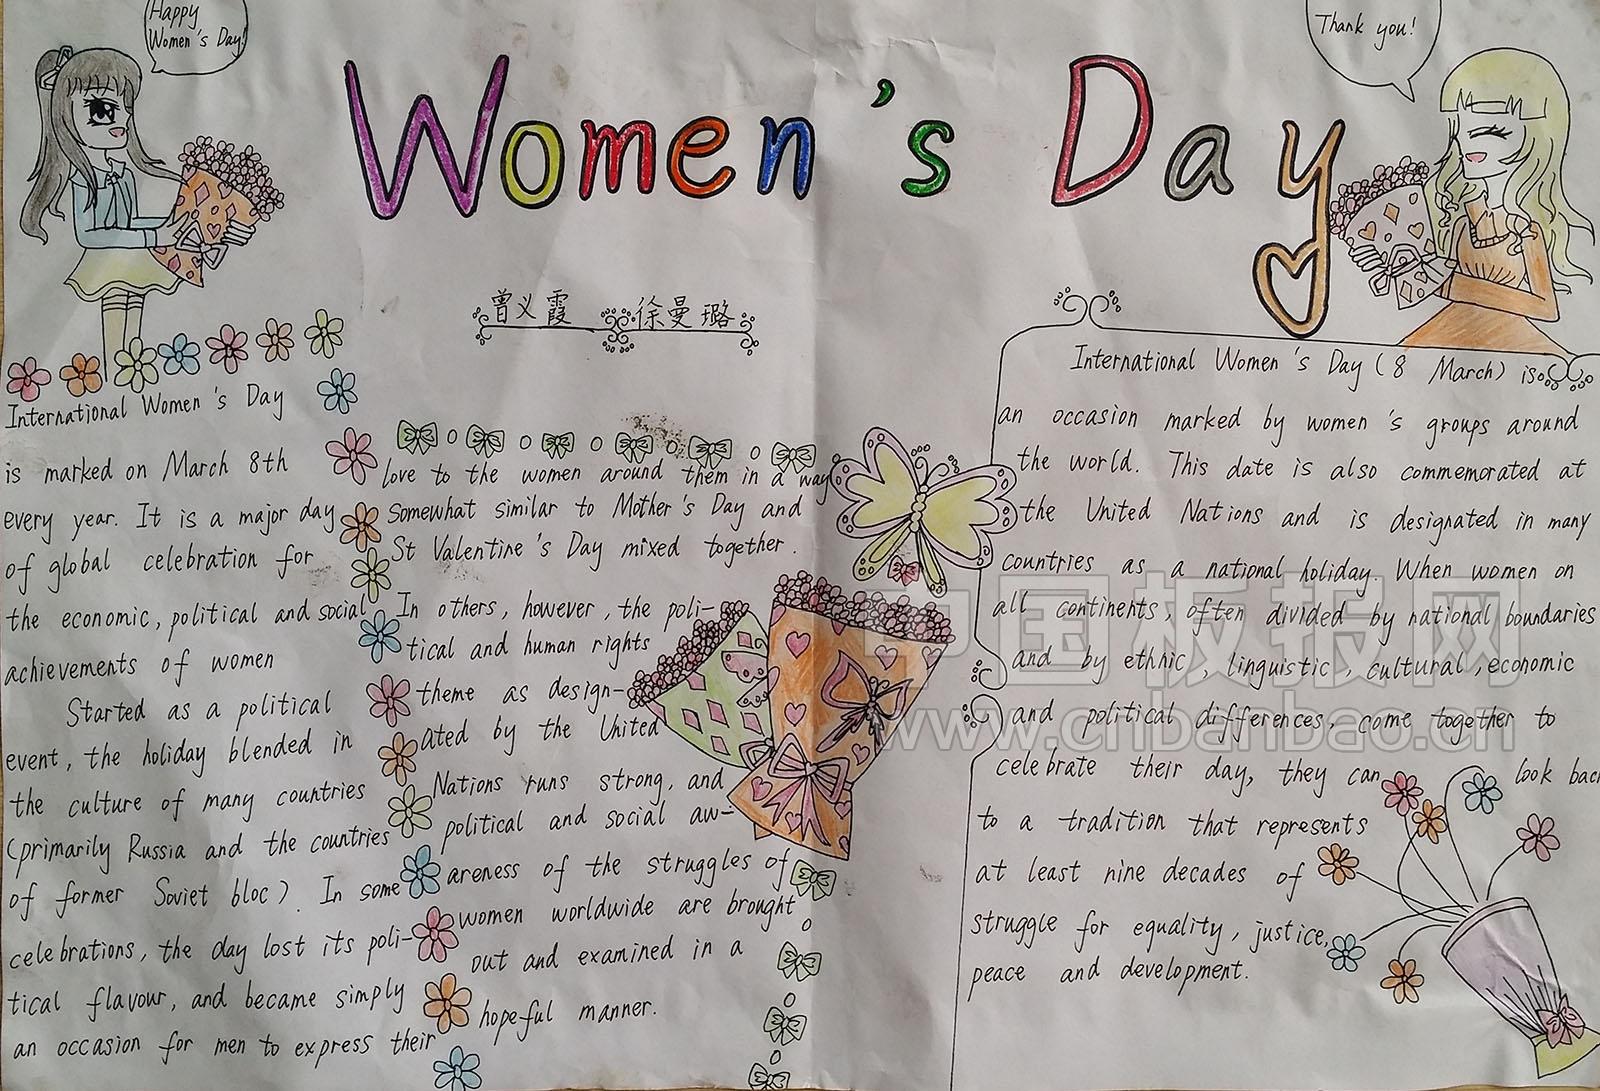 Happy
Women's Day!
Thank you!
Women's Day
曾义霞 徐曼璐
International Women's Day
is marked on March 8th
every year. It is a major day
of global celebration for
the economic, political and social
achievements of women
Started as a political
event, the holiday blended in
the culture of many countries
(primarily Russia and the countries
of former Soviet bloc). In some
celebrations, the day lost its poli-
tical flavour, and became simply
an occasion for men to express their
love to the women around them in a way
somewhat similar to Mother's Day and
St Valentine's Day mixed together.
In others, however, the poli-
tical and human rights
theme as design-
ated by the United
Nations runs strong, and
political and social aw-
areness of the struggles of
women worldwide are brought
out and examined in a
hopeful manner.
International Women's Day (8 March) is
an occasion marked by women's groups around
the world. This date is also commemorated at
the United Nations and is designated in many
countries as a national holiday. When women on
all continents, often divided by national boundaries
and by ethnic, linguistic, cultural, economic
and political differences, come together to
celebrate their day, they can look back
to a tradition that represents
at least nine decades of
struggle for equality, justice,
peace and development.
中国板报网
www.cnbanbao.cn